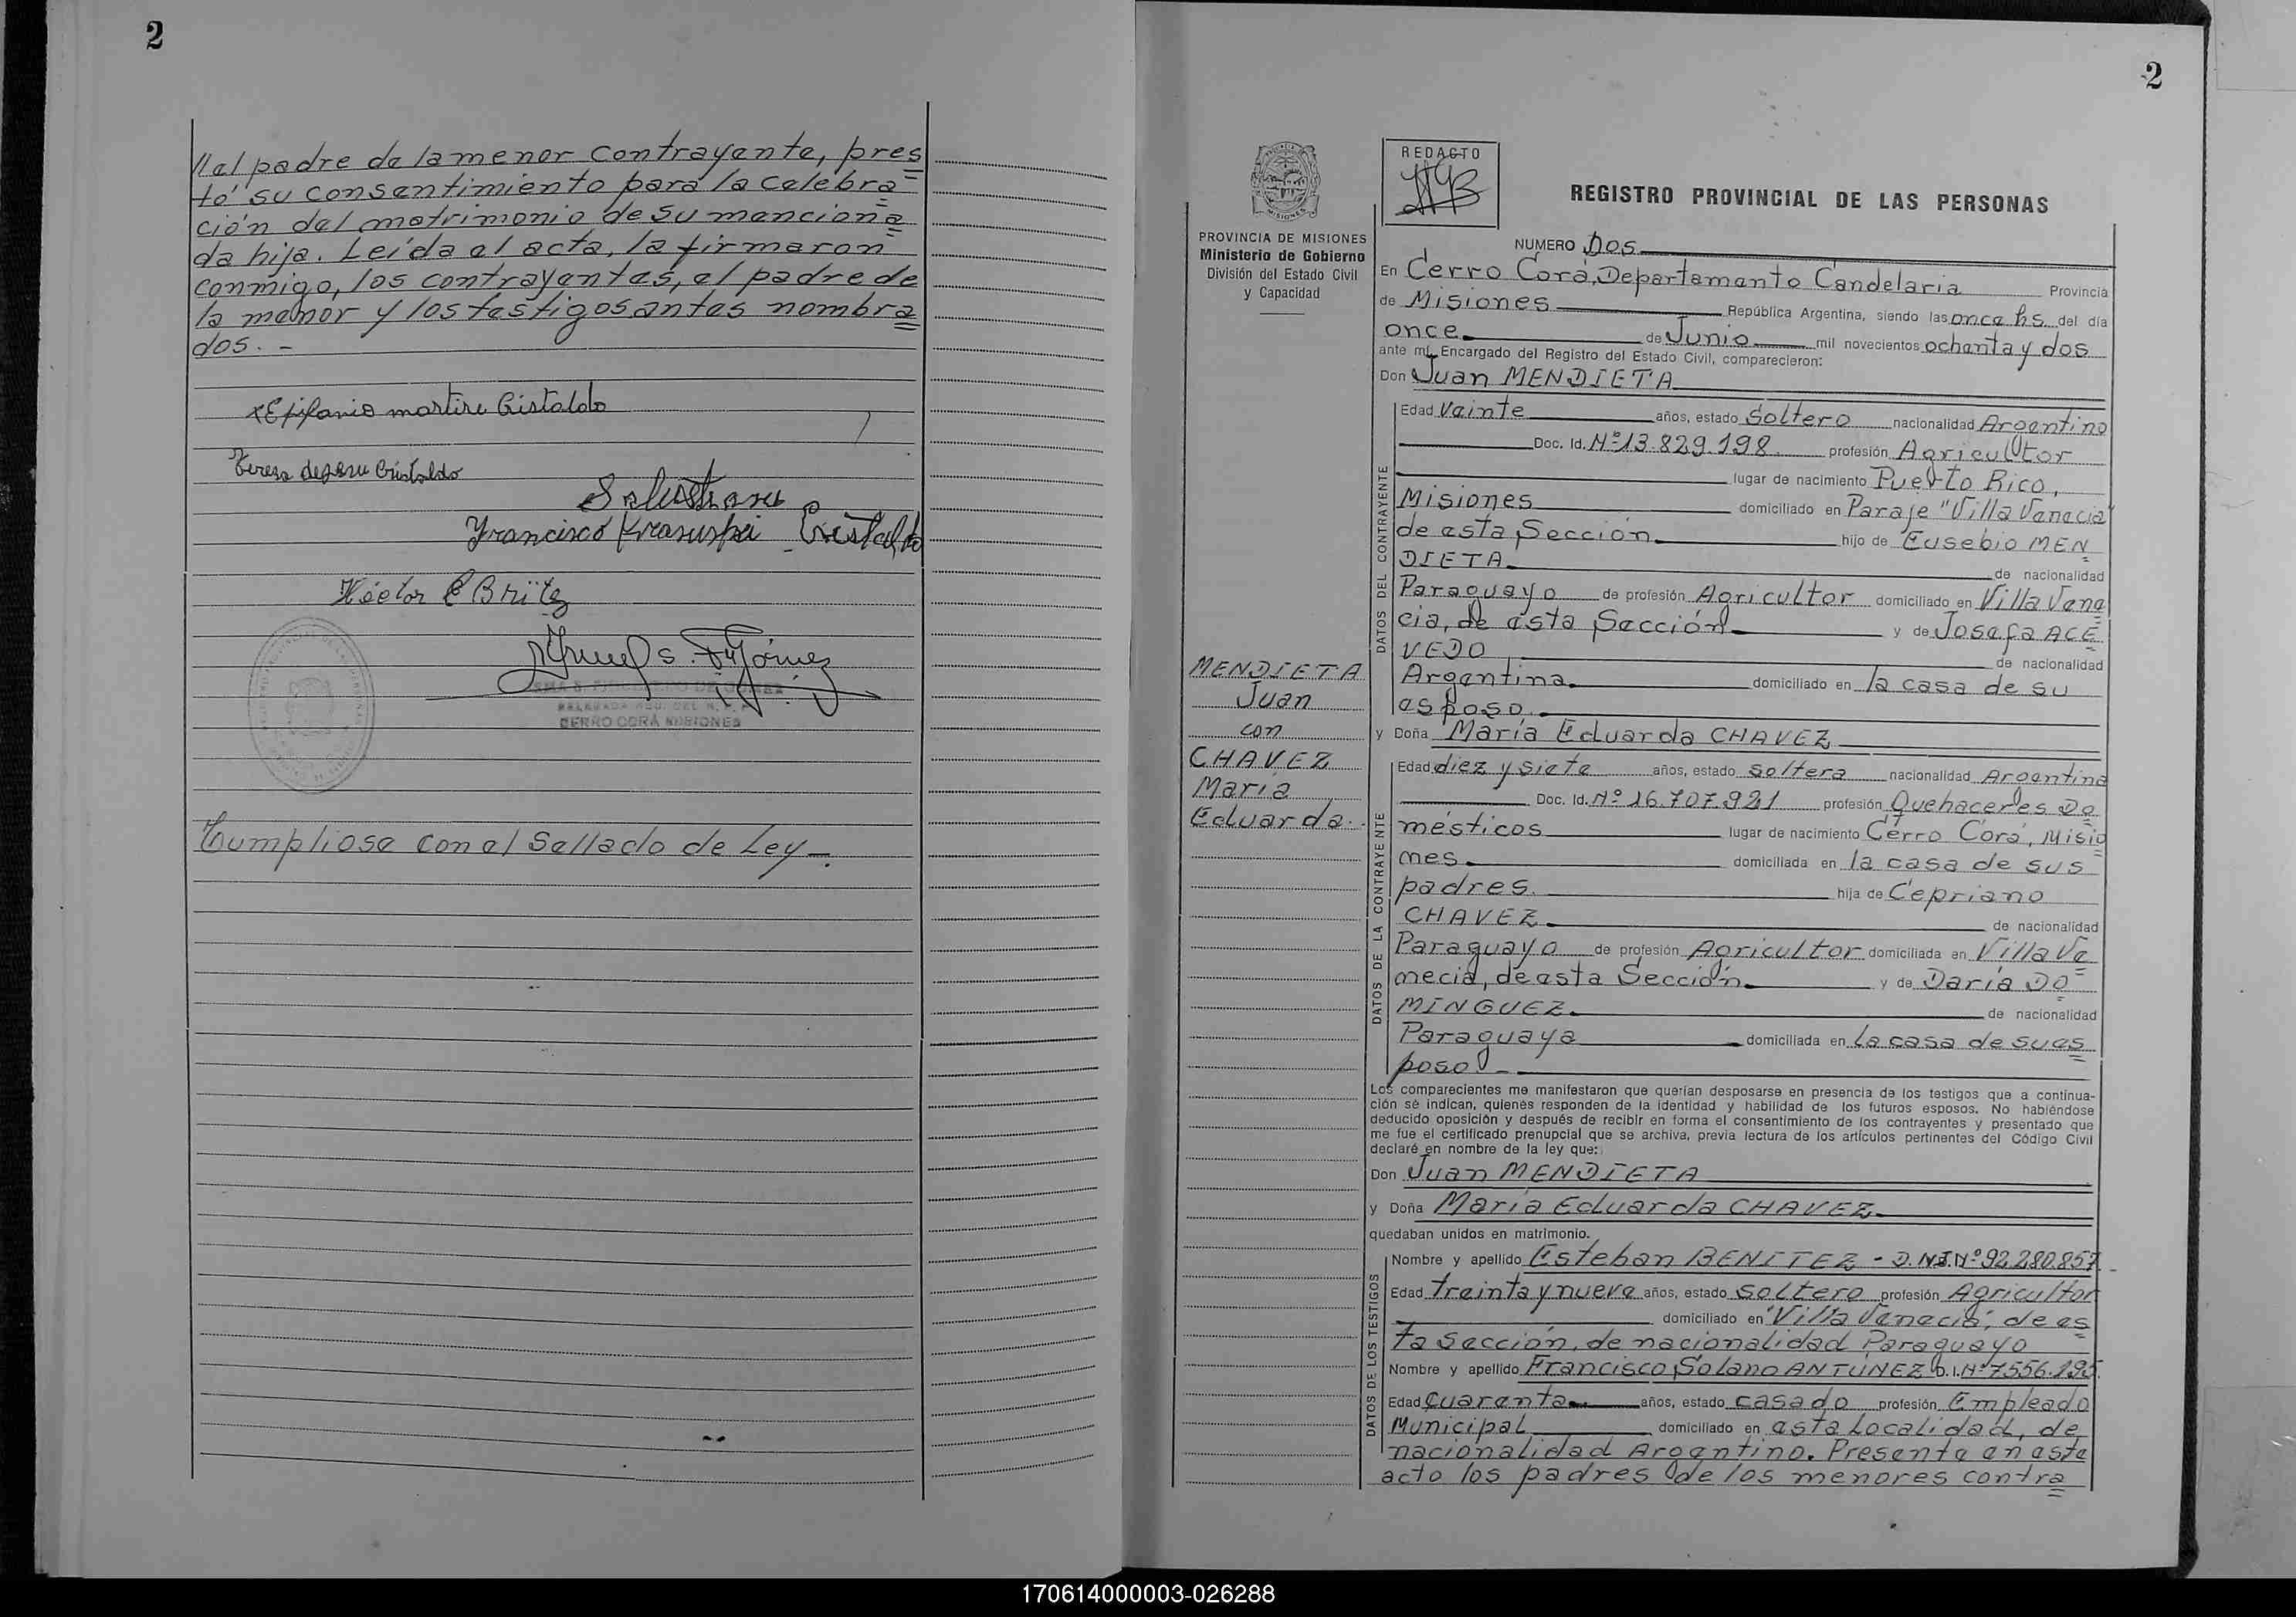 2
// el padre de la menor contrayente, pres
tó su consentimiento para la celebra
ción del matrimonio de su menciona
da hija. Leída el acta, la firmaron
conmigo, los contrayentes, el padre de
la menor y los testigos antes nombra
dos. -
Epifanio martire Cristaldo
Teresa de Cristaldo
Francisco Cristaldo
Héctor Britez
CERRO CORÁ MISIONES
Cumpliose con el Sellado de Ley -.
2
PROVINCIA DE MISIONES
Ministerio de Gobierno
División del Estado Civil
y Capacidad
REDACTO
REGISTRO PROVINCIAL DE LAS PERSONAS
NUMERO Dos
En Cerro Corá, Departamento Candelaria Provincia
de Misiones República Argentina, siendo las once hs. del día
once de Junio mil novecientos ochenta y dos
ante mí, Encargado del Registro del Estado Civil, comparecieron:
Don Juan MENDIETA
DATOS DEL CONTRAYENTE
Edad Veinte años, estado Soltero nacionalidad Argentino
Doc. Id. Nº 13.829.198 profesión Agricultor
lugar de nacimiento Puerto Rico,
Misiones domiciliado en Paraje "Villa Venecia"
de esta Sección hijo de Eusebio MEN
DIETA de nacionalidad
Paraguayo de profesión Agricultor domiciliado en Villa Vene
cia, de esta Sección y de Josefa ACE
VEDO de nacionalidad
Argentina domiciliado en la casa de su
esposo.
MENDIETA
Juan
con
CHAVEZ
Maria
Eduarda.
y Doña María Eduarda CHAVEZ
DATOS DE LA CONTRAYENTE
Edad diez y siete años, estado soltera nacionalidad Argentina
Doc. Id. Nº 16.707.921 profesión Quehaceres Do
mésticos lugar de nacimiento Cerro Corá, Misio
nes domiciliada en la casa de sus
padres. hija de Cepriano
CHAVEZ de nacionalidad
Paraguayo de profesión Agricultor domiciliada en Villa Ve
necia, de esta Sección y de Daría DO
MINGUEZ de nacionalidad
Paraguaya domiciliada en la casa de su es
poso -
Los comparecientes me manifestaron que querían desposarse en presencia de los testigos que a continua-
ción se indican, quienes responden de la identidad y habilidad de los futuros esposos. No habiéndose
deducido oposición y después de recibir en forma el consentimiento de los contrayentes y presentado que
me fue el certificado prenupcial que se archiva, previa lectura de los artículos pertinentes del Código Civil
declaré en nombre de la ley que:
Don Juan MENDIETA
y Doña María Eduarda CHAVEZ
quedaban unidos en matrimonio.
DATOS DE LOS TESTIGOS
Nombre y apellido Esteban BENITEZ - D.N.I. Nº 92.280.857.
Edad treinta y nueve años, estado soltero profesión Agricultor
domiciliado en "Villa Venecia", de es
ta sección, de nacionalidad Paraguayo
Nombre y apellido Francisco Solano ANTUNEZ D.I. Nº 7.556.195.
Edad Cuarenta años, estado casado profesión Empleado
Municipal domiciliado en esta Localidad, de
nacionalidad Argentino. Presente en este
acto los padres de los menores contra
170614000003-026288